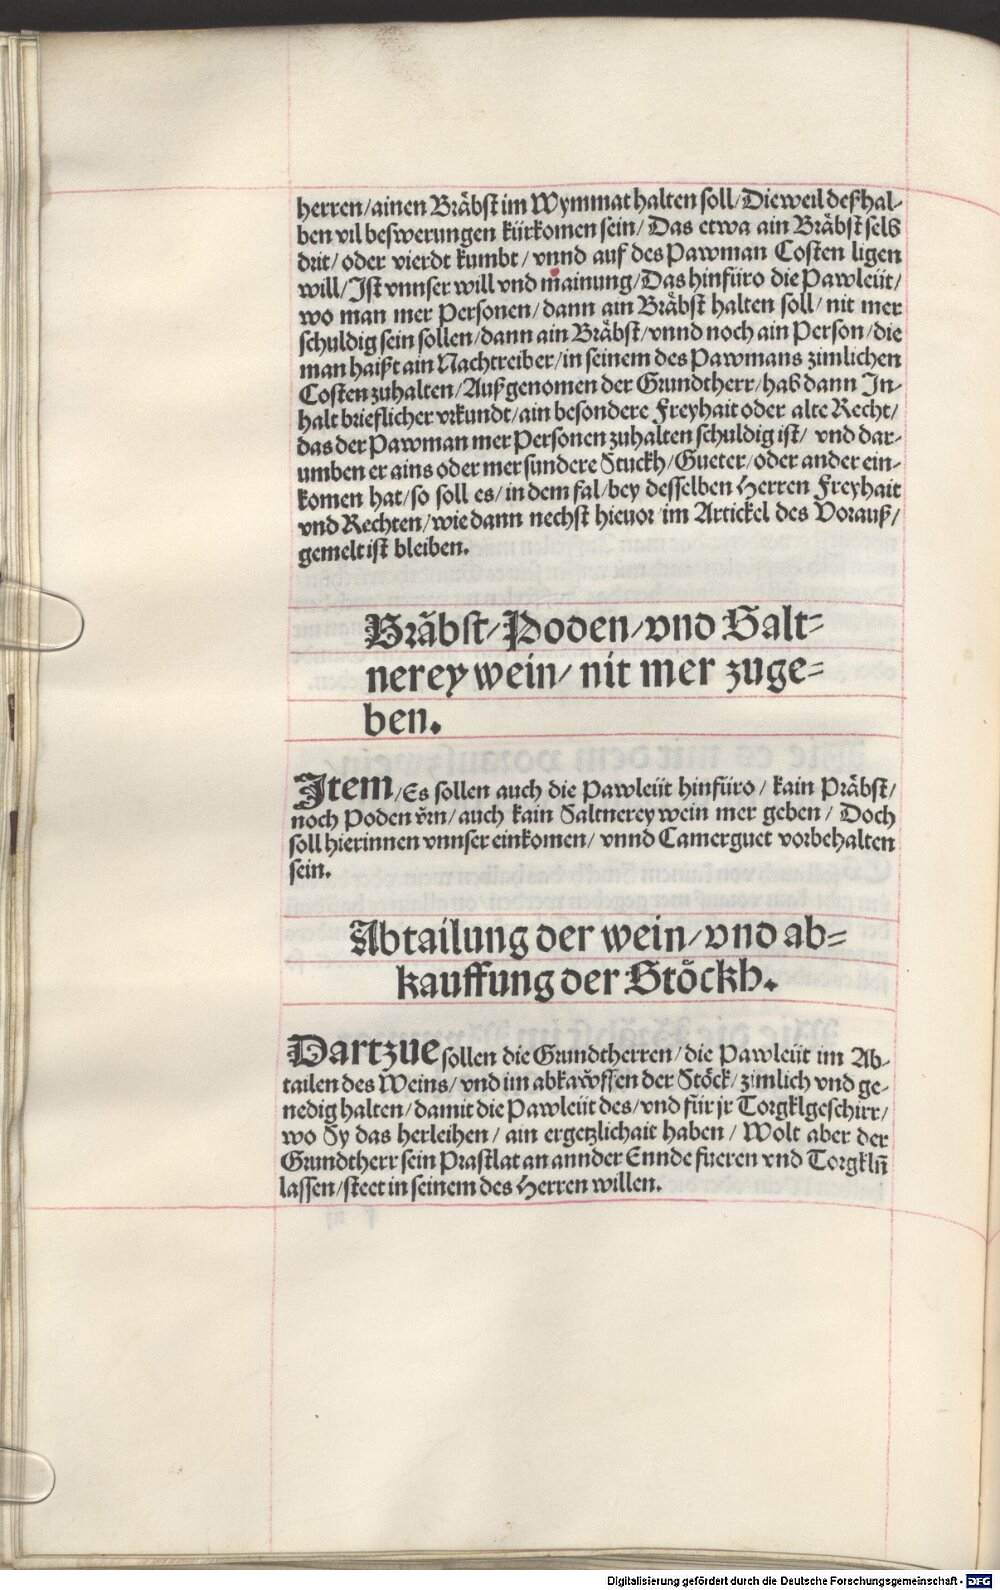 herren/ainen Bräbſt im Wymmat halten ſoll/Dieweil deßhal-
ben vil beswerungen fürkomen sein/ Das etwa ain Bräbſt selb
drit/oder vierdt kumbt/vnnd auf des Pawman Coſten ligen
will/Iſt vnnſer will vnd mainung/Das hinfüro die Pawleüt/
wo man mer Personen/dann ain Bräbſt halten soll/nit mer
ſchuldig sein sollen/dann ain Bräbſt/vnnd noch ain Person/die
man haißt ain Nachtreiber/in seinem des Pawmans zimlichen
Coſten zuhalten/Außgenomen der Grundtherr/hab dann In-
halt brieflicher vrkundt/ain besondere Freyhait oder alte Recht/
das der Pawman mer Personen zuhalten ſchuldig iſt/ vnd dar-
umben er ains oder mer ſundere Stuckh/Gueter/oder ander ein-
komen hat/so soll es/in dem fal/bey desſelben Herren Freyhait
vnd Rechten/wie dann nechſt hieuor im Artickel des Vorauß/
gemelt iſt bleiben.
Bräbſt/Poden/vnd Salt-
nerey wein/ nit mer zuge-
ben.
Item/Es sollen auch die Pawleüt hinfüro/ kain Präbſt/
noch Poden v̈rn/auch kain Saltnerey wein mer geben/ Doch
ſoll hierinnen vnnſer einkomen/ vnnd Camerguet vorbehalten
ſein.
Abtailung der wein/vnd ab-
kauffung der Stöckh.
Dartzue ſollen die Grundtherren/die Pawleüt im Ab-
tailen des Weins/vnd im abkaẅffen der Stöck/zimlich vnd ge-
nedig halten/damit die Pawleüt des/vnd für jr Torgklgeſchirr/
wo Sy das herleihen/ ain ergetzlichait haben/ Wolt aber der
Grundtherr sein Praſtlat an annder Ennde füeren vnd Torgkln̄
laſſen/ſteet in seinem des Herren willen.
Digitalisierung gefördert durch die Deutsche Forschungsgemeinschaft - DFG